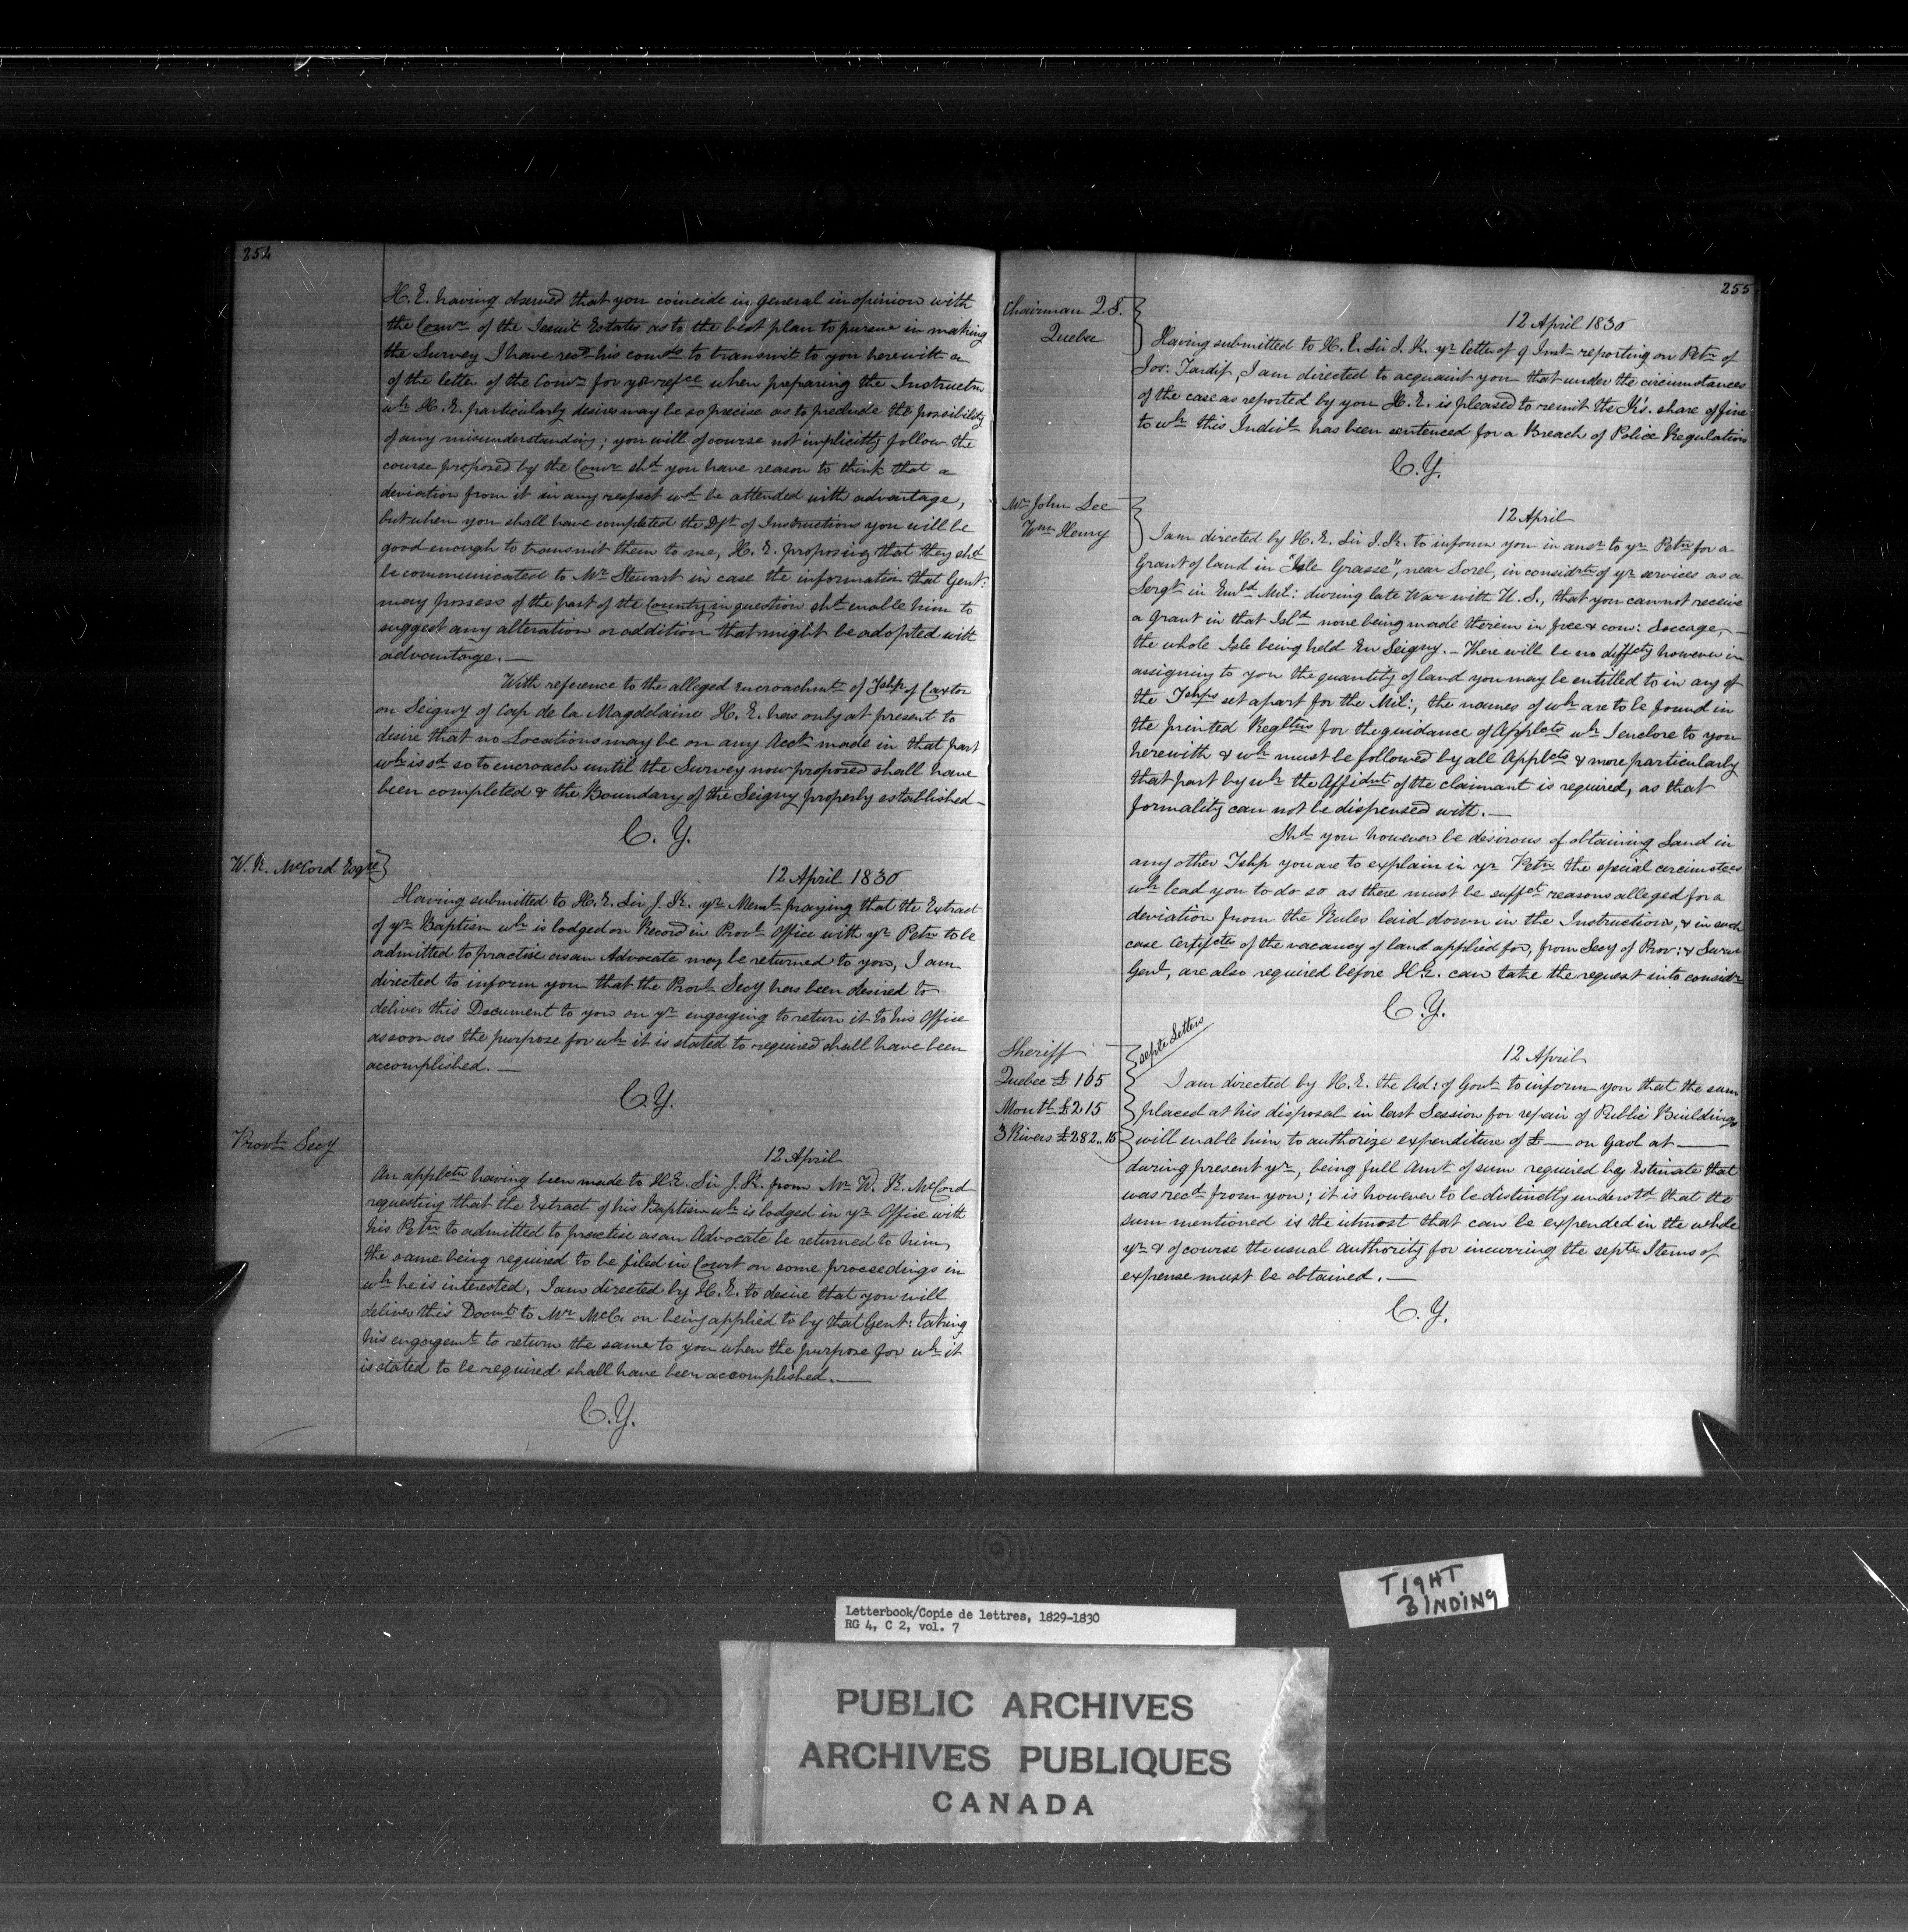 254
H.E. having observed that you coincide in general in opinion with
the Comr of the Jesuit Estates as to the best plan to pursue in making
the Survey I have recd his comds to transmit to you herewith a
of the letter of the Comr for yr refce when preparing the Instructns
wh H.E. particularly desires may be so precise as to preclude the possibility
of any misunderstanding; you will of course not implicitly follow the
course proposed by the Comr shd you have reason to think that a
deviation from it in any respect wd be attended with advantage,
but when you shall have completed the Dft of Instructions you will be
good enough to transmit them to me, H.E. proposing that they shd
be communicated to Mr Stewart in case the information that Gent:
may possess of the part of the Country in question shd enable him to
suggest any alteration or addition that might be adopted with
advantage.—
With reference to the alleged encroachmts of Tshp of Caxton
on Seigny of Cap de la Magdelaine H.E. has only at present to
desire that no Locations may be on any Acct made in that part
wh is sd so to encroach until the Survey now proposed shall have
been completed & the Boundary of the Seigny properly established—
C.Y.
W.K. McCord Esqre
12 April 1830
Having submitted to H.E. Sir J.K. yr Meml praying that the Extract
of yr Baptism wh is lodged on Record in Provl Office with yr Petn to be
admitted to practise as an Advocate may be returned to you, I am
directed to inform you that the Provl Secy has been desired to
deliver this Document to you on yr engaging to return it to his Office
as soon as the purpose for wh it is stated to required shall have been
accomplished.—
C.Y.
Provl Secy
12 April
An applctn having been made to H.E. Sir J.K. from Mr W.K. McCord
requesting that the Extract of his Baptism wh is lodged in yr Office with
his Petn to admitted to practise as an Advocate be returned to him,
the same being required to be filed in Court on some proceedings in
wh he is interested, I am directed by H.E. to desire that you will
deliver this Docmt to Mr McC. on being applied to by that Gent: taking
his engagemt to return the same to you when the purpose for wh it
is stated to be required shall have been accomplished.—
C.Y.
255
Chairman Q.S.
Quebec
12 April 1830
Having submitted to H.E. Sir J.K. yr letter of 9 Inst reporting on Petn of
Jos: Tardif, I am directed to acquaint you that under the circumstances
of the case as reported by you H.E. is pleased to remit the K's. share of fine
to wh this Indivl has been sentenced for a Breach of Police Regulations
C.Y.
Mr John Lee
Wm Henry
12 April
I am directed by H.E. Sir J.K. to inform you in ansr to yr Petn for a
Grant of land in "Isle Grasse", near Sorel, in considrtn of yr services as a
Sergt in Embd Mil: during late War with U.S., that you can not receive
a Grant in that Isld none being made therein in free & com: Soccage,—
the whole Isle being held En Seigny.— There will be no diffcty however in
assigning to you the quantity of land you may be entitled to in any of
the Tshps set apart for the Mil:, the names of wh are to be found in
the printed Regltns for the guidance of Applcts wh I enclose to you
herewith & wh must be followed by all Applcts & more particularly
that part by wh the Affidvt of the claimant is required, as that
formality can not be dispensed with.—
Shd you however be desirous of obtaining Land in
any other Tshp you are to explain in yr Petn the special circumstces
wh lead you to do so as there must be suffct reasons alleged for a
deviation from the Rules laid down in the Instructions, & in such
case Certifctes of the vacancy of land applied for, from Secy of Prov: & Survr
Genl, are also required before H.E. can take the request into considr
C.Y.
Sheriff
Quebec £165
Montl £215
3 Rivers £282..15
septe Letters
12 April
I am directed by H.E. the Ad: of Govt to inform you that the sum
placed at his disposal in last Session for repair of Public Buildings
will enable him to authorize expenditure of £— on Gaol at —
during present yr, being full Amt of sum required by Estimate that
was recd from you; it is however to be distinctly understd that the
sum mentioned is the utmost that can be expended in the whole
yr & of course the usual Authority for incurring the septe Items of
expense must be obtained.—
C.Y.
TIGHT
BINDING
Letterbook/Copie de lettres, 1829-1830
RG 4, C 2, vol. 7
PUBLIC ARCHIVES
ARCHIVES PUBLIQUES
CANADA